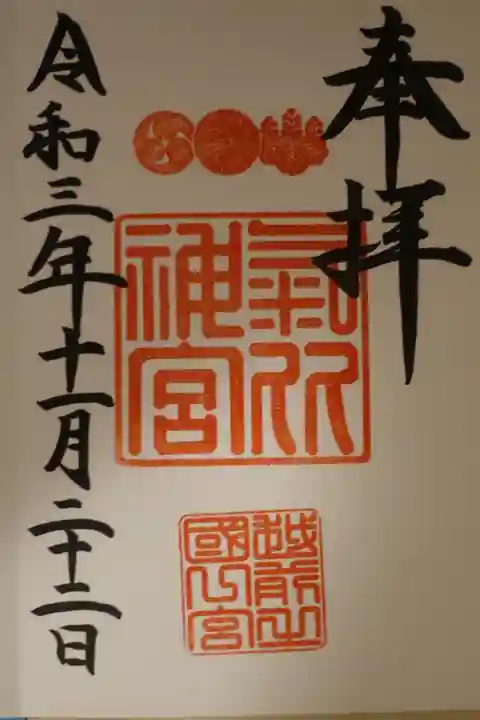 奉拝
氣比
神宮
越前之
國 宮
令和三年十一月二十二日